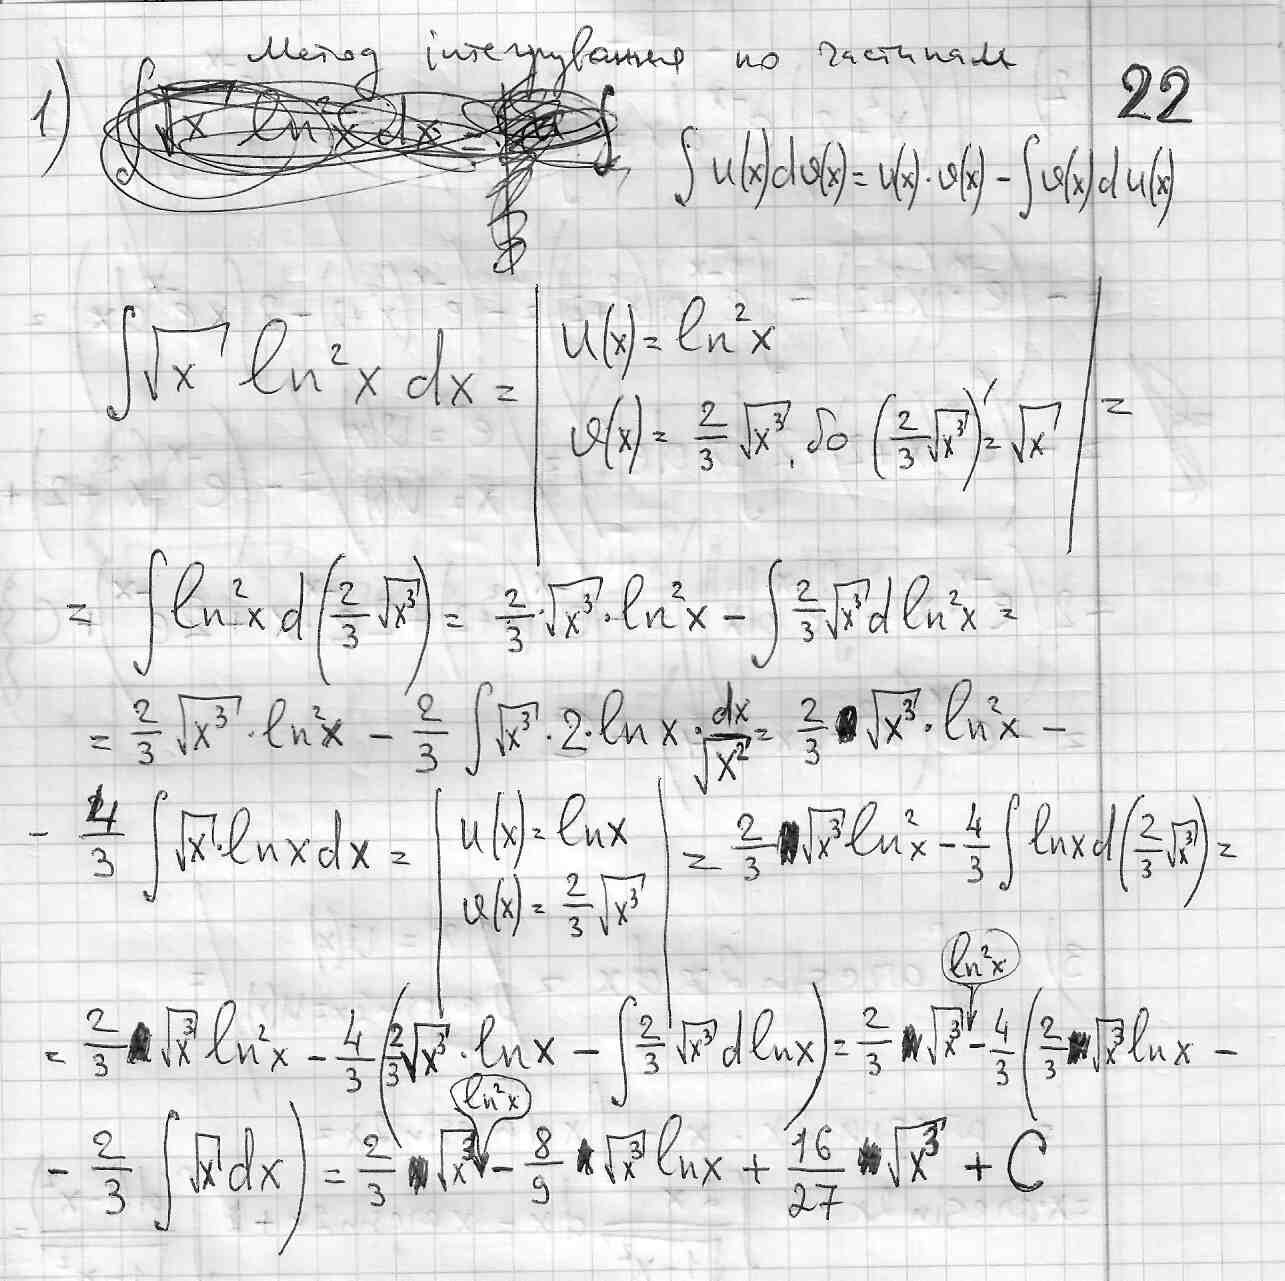 Метод інтегрування по частинам
22
1) ∫√x ln²x dx =
∫u(x)dv(x) = u(x)·v(x) − ∫v(x)du(x)
∫√x ln²x dx = | u(x) = ln²x
v(x) = 2/3 √x³, бо (2/3 √x³)′ = √x | =
= ∫ln²x d(2/3 √x³) = 2/3·√x³·ln²x − ∫2/3 √x³ d ln²x =
= 2/3 √x³·ln²x − 2/3 ∫√x³·2·ln x·dx/√x² = 2/3 √x³·ln²x −
− 4/3 ∫√x·ln x dx = | u(x) = ln x
v(x) = 2/3 √x³ | = 2/3 √x³ ln²x − 4/3 ∫ln x d(2/3 √x³) =
= 2/3 √x³ ln²x − 4/3 (2/3 √x³·ln x − ∫2/3 √x³ d ln x) = 2/3 √x³ ln²x − 4/3 (2/3 √x³ ln x −
− 2/3 ∫√x dx) = 2/3 √x³ ln²x − 8/9 √x³ ln x + 16/27 √x³ + C